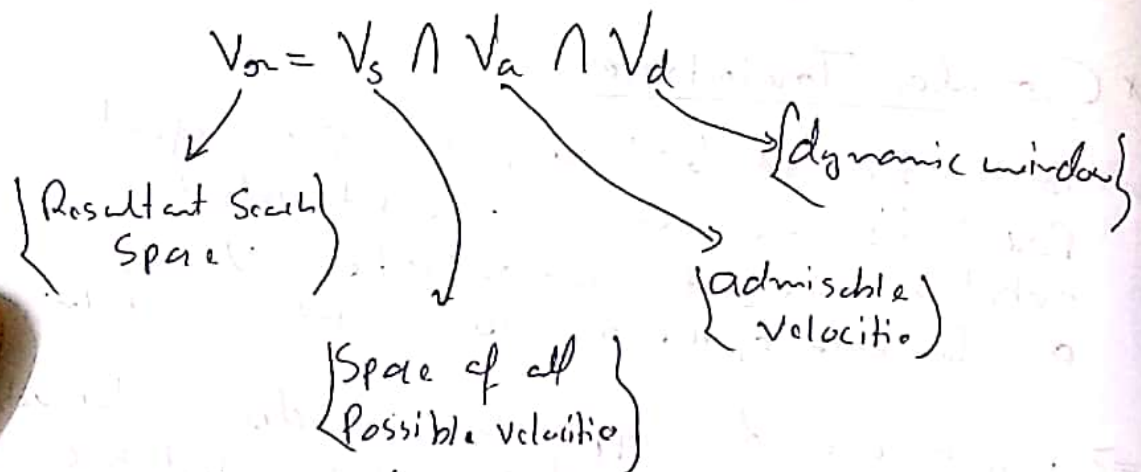 Vr = Vs ∩ Va ∩ Vd
{dynamic window}
{Resultant Search
Space}
{admissble
Velocitie}
{Space of all
Possible velocitie}